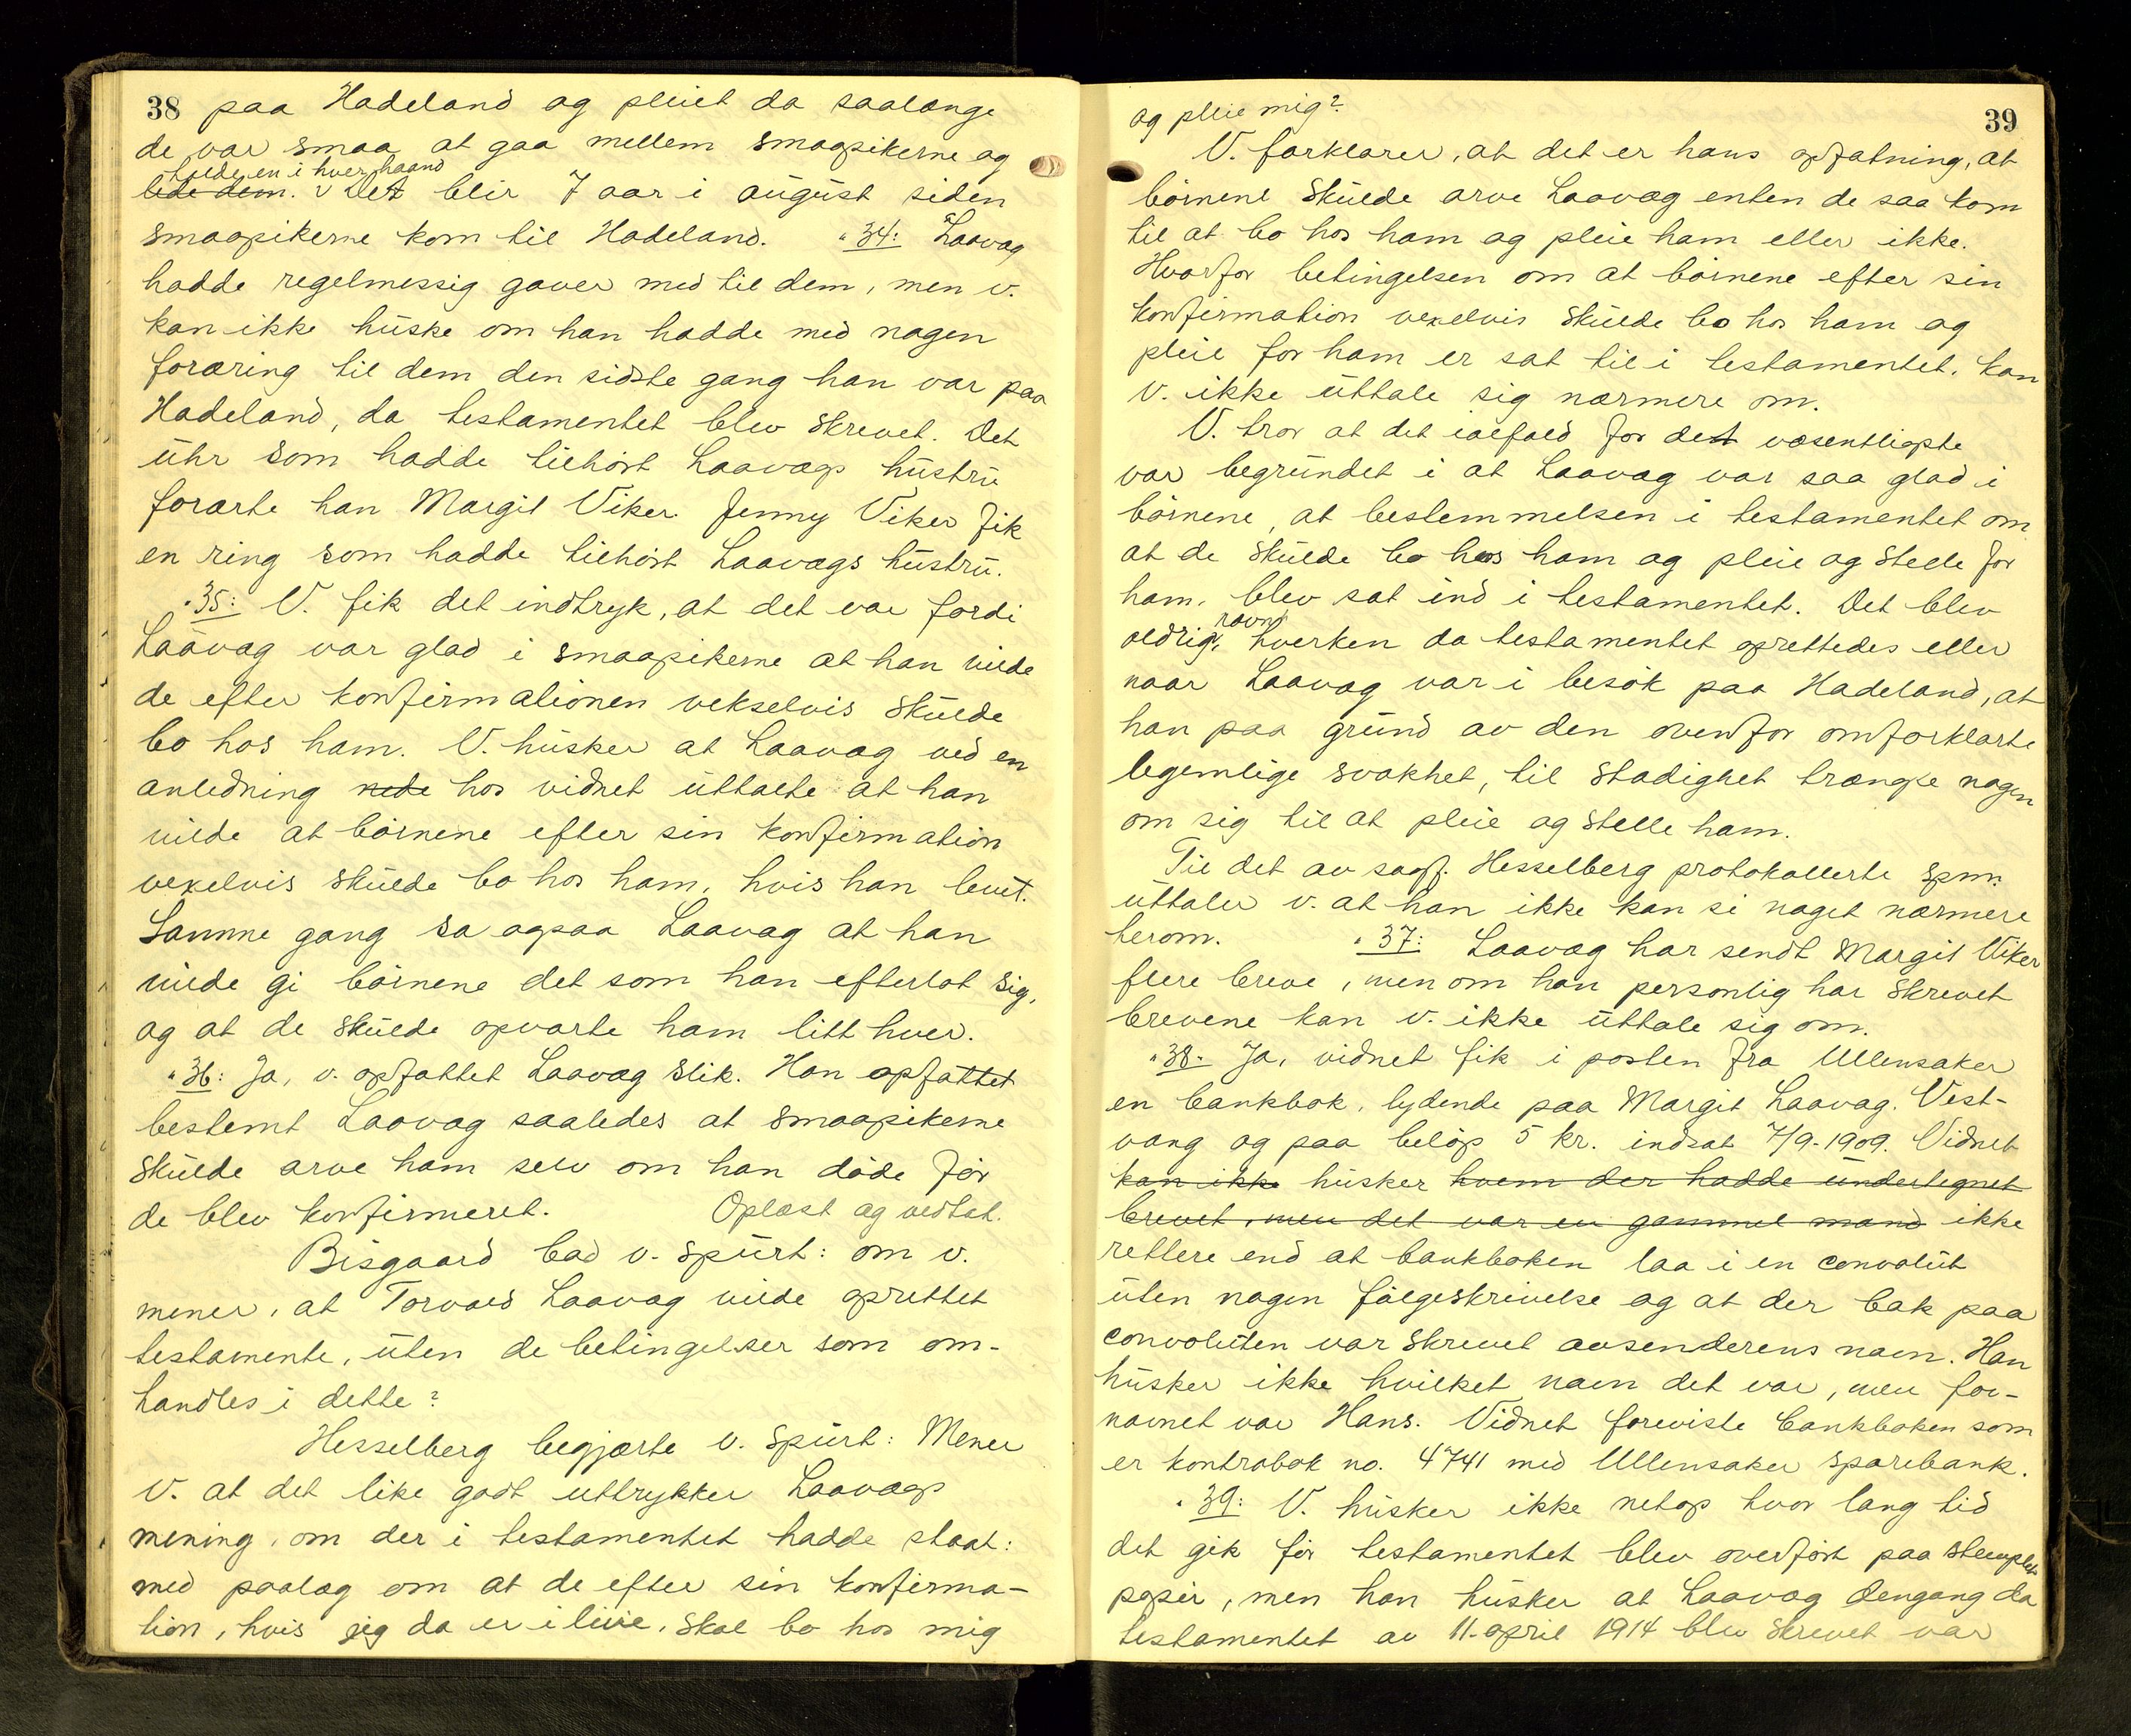 38 paa Hadeland og pleiet da saalænge
de var smaa at gaa mellem smaapikerne og
holde en i hver haand
lede dem. v Det blir 7 aar i august siden
smaapikerne kom til Hadeland. " 34: Laavag
hadde regelmessig gaver med til dem, men v.
kan ikke huske om han hadde med nogen
foræring til dem den sidste gang han var paa
Hadeland, da testamentet blev skrevet. Det
uhr som hadde tilhørt Laavags hustru
forærte han Margit Viker. Jenny Viker fik
en ring som hadde tilhørt Laavags hustru.
" 35: V. fik det indtryk, at det var fordi
Laavag var glad i smaapikerne at han vilde
de efter konfirmationen vekselvis skulde
bo hos ham. V. husker at Laavag ved en
anledning nede hos vidnet uttalte at han
vilde at børnene efter sin konfirmation
vexelvis skulde bo hos ham, hvis han levet.
Samme gang sa ogsaa Laavag at han
vilde gi børnene det som han efterlot sig,
og at de skulde opvarte ham litt hver.
" 36: Ja, v. opfattet Laavag slik. Han opfattet
bestemt Laavag saaledes at smaapikerne
skulde arve ham selv om han døde før
de blev konfirmeret. Oplæst og vedtat.
Bisgaard bad v. spurt: om v.
mener, at Torvald Laavag vilde oprettet
testamente, uten de betingelser som om-
handles i dette?
Hesselberg begjærte v. spurt: Mener
V. at det like godt uttrykker Laavags
mening, om der i testamentet hadde staat:
med paalæg om at de efter sin konfirma-
tion, hvis jeg da er i live, skal bo hos mig
39
og pleie mig?
V. forklarer, at det er hans opfatning, at
børnene skulde arve Laavag enten de saa kom
til at bo hos ham og pleie ham eller ikke.
Hvorfor betingelsen om at børnene efter sin
konfirmation vexelvis skulde bo hos ham og
pleie for ham er sat til i testamentet, kan
v. ikke uttale sig nærmere om.
V. tror at det ialfald for det væsentligste
var begrundet i at Laavag var saa glad i
børnene, at bestemmelsen i testamentet om
at de skulde bo hos ham og pleie og stelle for
ham, blev sat ind i testamentet. Det blev
nævnt
aldrig, hverken da testamentet oprettedes eller
naar Laavag var i besøk paa Hadeland, at
han paa grund av den ovenfor omforklarte
legemlige svakhet, til stadighet trængte nogen
om sig til at pleie og stelle ham.
Til det av sagf. Hesselberg protokollerte spm.
uttaler v. at han ikke kan si noget nærmere
herom. " 37: Laavag har sendt Margit Viker
flere breve, men om han personlig har skrevet
brevene kan v. ikke uttale sig om.
" 38. Ja, vidnet fik i posten fra Ullensaker
en bankbok, lydende paa Margit Laavag. Vest-
vang og paa beløp 5 kr. indsat 7/9-1909. Vidnet
kan ikke husker hvem der hadde undertegnet
brevet, men det var en gammel mand ikke
rettere end at bankboken laa i en convolut
uten nogen følgeskrivelse og at der bak paa
convoluten var skrevet avsenderens navn. Han
husker ikke hvilket navn det var, men for-
navnet var Hans. Vidnet foreviste bankboken som
er kontrabok no. 4741 med Ullensaker sparebank.
" 39: V. husker ikke netop hvor lang tid
det gik før testamentet blev overført paa stemplet
papir, men han husker at Laavag dengang da
testamentet av 11. april 1914 blev skrevet var